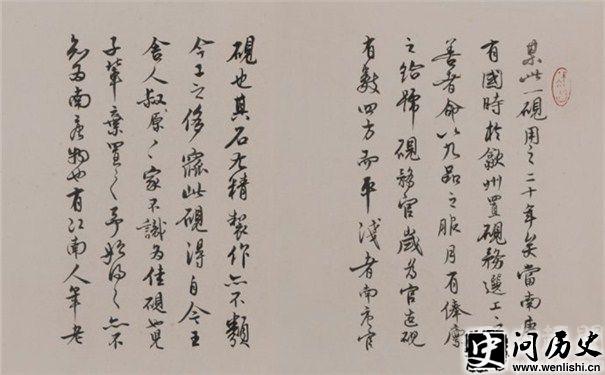 某此一硯用之二十年矣當南唐
有國時於歙州置硯務選工之
善者命以九品之服月有俸廩
之給號硯務官歲為官造硯
有數四方而平淺者南唐官
硯也其石尤精製作亦不類
今工之侈窳此硯得自今王
舍人叔原〻家不識為佳硯也兒
子輩棄置之予始得之亦不
知為南唐物也有江南人年老
史 问历史
www.wenlishi.cn